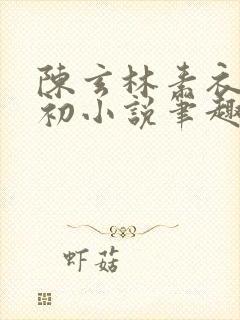 陳玄林素衣
初小說筆趣
虾菇